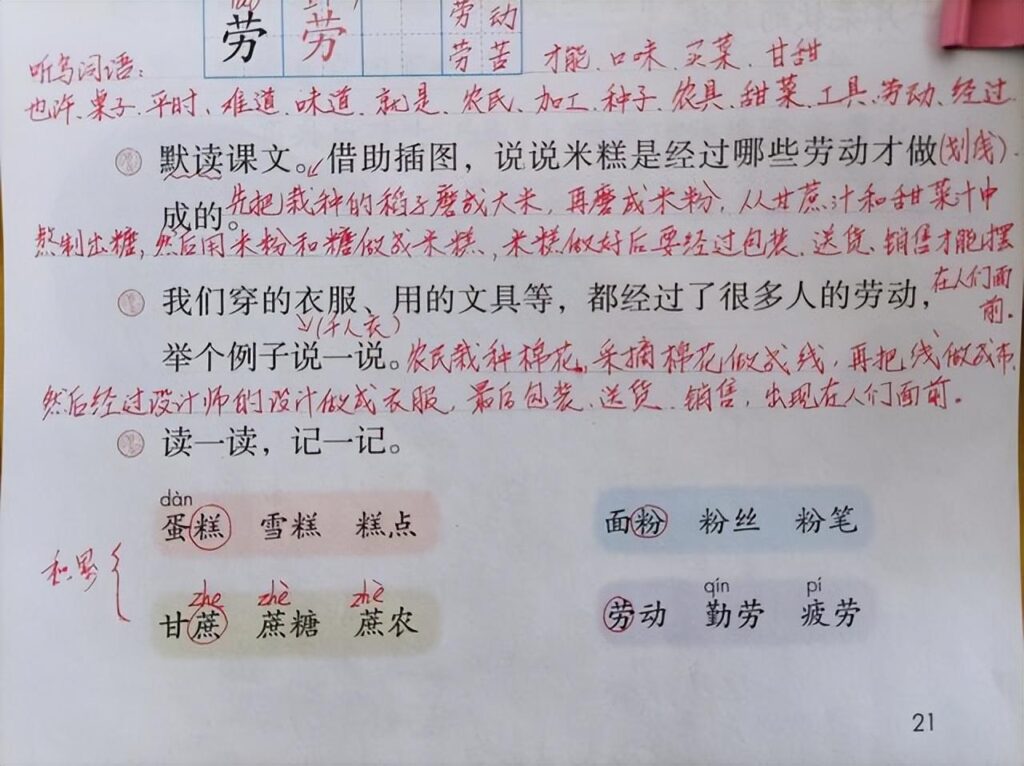 劳 劳 劳动
劳苦 才能、口味、买菜、甘甜
听写词语：
也许、桌子、平时、难道、味道、就是、农民、加工、种子、农具、甜菜、工具、劳动、经过
默读课文。借助插图，说说米糕是经过哪些劳动才做(划线)
成的。先把栽种的稻子磨成大米，再磨成米粉，从甘蔗汁和甜菜汁中
熬制出糖，然后用米粉和糖做成米糕，米糕做好后要经过包装、送货、销售才能摆
在人们面前。
我们穿的衣服、用的文具等，都经过了很多人的劳动，
(千人衣)
举个例子说一说。农民栽种棉花，采摘棉花做成线，再把线做成布，
然后经过设计师的设计做成衣服，最后包装、送货、销售，出现在人们面前。
读一读，记一记。
dàn
蛋糕 雪糕 糕点 面粉 粉丝 粉笔
积累
zhe zhè zhè qín pí
甘蔗 蔗糖 蔗农 劳动 勤劳 疲劳
21